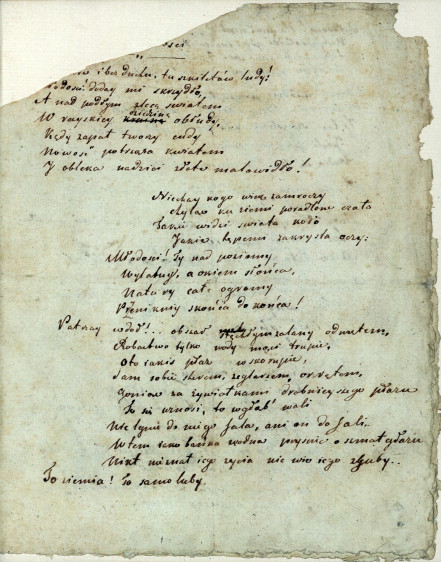 ości
i bez ducha, tu szkieletów ludy!
łodości! doday mi skrzydło,
A nad podłym lecę światem
W rayskiey dziedzinę obłudy,
Kędy zapał tworzy cudy
Nowość potrząsa kwiatem
I obleka nadziei złote malowidło!
Niechay kogo wiek zamroczy
Chyląc ku ziemi poradlone czoło
Takie widzi świata koło
Jakie tępemi zakryśla oczy:
Młodości! Ty nad poziomy
Wylatuy, a okiem słońca,
Natury całe ogromy
Przeniknij z końca do końca!
Patrzay w dół!.. obszar zalany odmętem,
Robactwo tylko wody mąci trupie,
Oto iakiś płaz w skorupie,
Sam sobie sterem, żeglarzem, okrętem,
Goniąc za żywiołkami drobnieyszego płazu
To się wznosi, to w głąb wali
Nie lgnie do niego fala, ani on do fali..
Wtem iako bańka wodna prysnie o szmat głazu
Nikt nieznał iego życia nie wie iego zguby..
To ziemia! To samoluby.